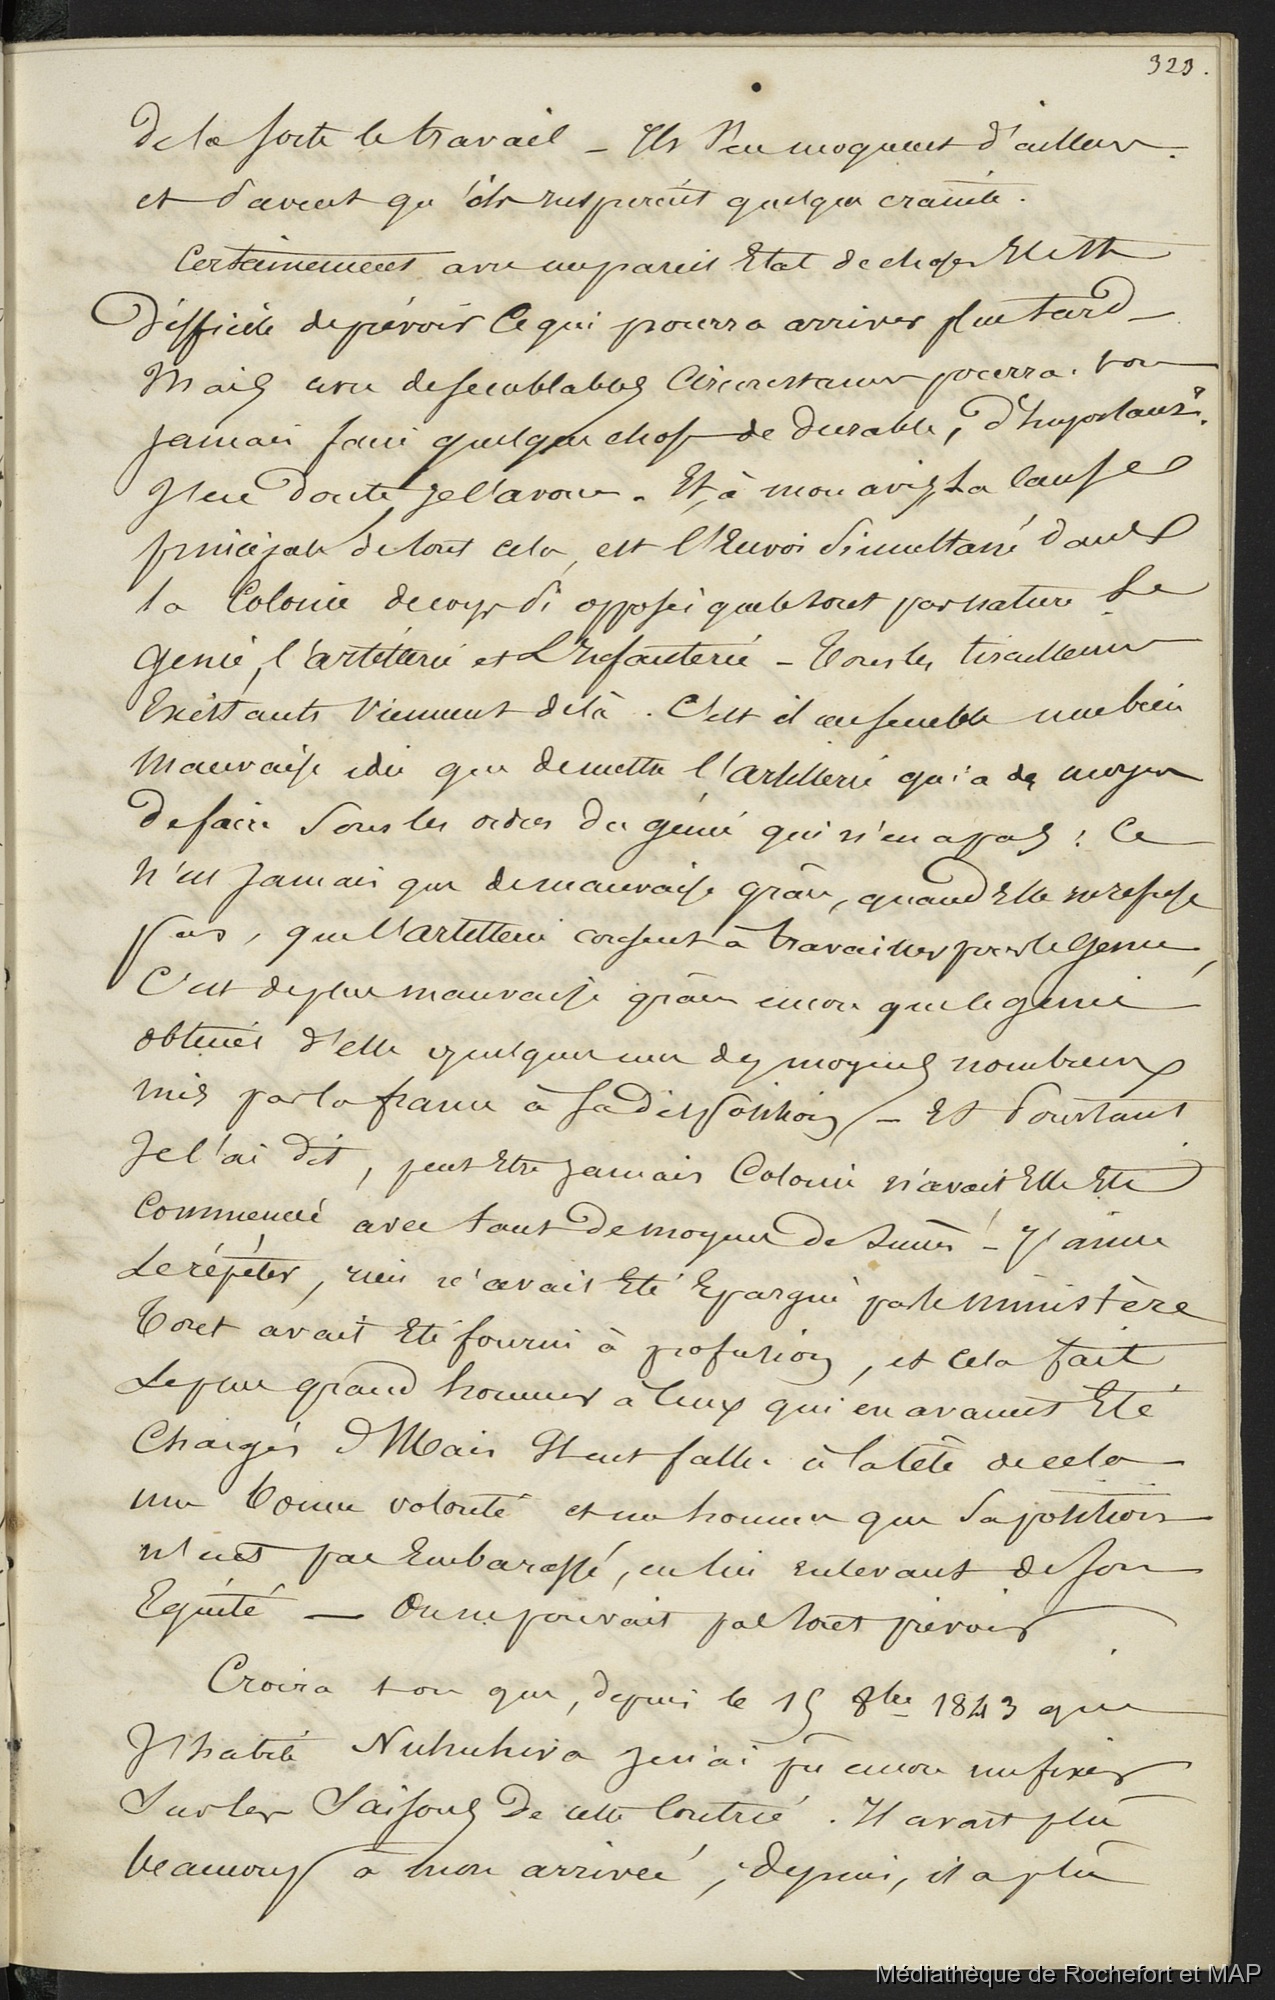 323.
de la sorte le travail _ Ils s'en moquent d'ailleurs.
et savent qu'ils inspirent quelque crainte.
Certainement avec un pareil Etat de choses Il est
difficile de prévoir Ce qui pourra arriver plus tard _
Mais avec de semblables Circonstances pourra-t-on
jamais faire quelque chose de durable, d'Important?.
J'en doute, je l'avoue. Et, à mon avis, La Cause
principale de tout cela, est l'Envoi Simultané dans
la Colonie de corps si opposés que le sont par nature Le
génie, l'artillerie et L'Infanterie _ Tous les tiraillements
Existants Viennent de là. C'est il me semble une bien
Mauvaise idée que de mettre l'artillerie qui a des moyens
de faire Sous les ordres du génie qui n'en a pas ; Ce
n'est Jamais que de mauvaise grâce, quand Elle ne refuse
pas, que l'artillerie consent à travailler pour le génie,
C'est de plus mauvaise grâce encore que le génie
obtient d'elle quelques uns des moyens nombreux
mis par la france à sa disposition _ Et Pourtant
Je l'ai dit, peut Etre jamais Colonie n'avait Elle Eté
Commencée avec tant De moyens De Succès ! _ J'aime
Le répéter, rien n'avait Eté Epargné par le ministère
Tout avait Eté fourni à profusion, et cela fait
Le plus grand honneur à Ceux qui en avaient Eté
Chargés Mais Il eut fallu à la tête de cela
une bonne volonté et un homme que Sa position
n'eut pas Embarassé, en lui enlevant de son
Equité _ On ne pouvait pas tout prévoir.
Croira t on que, depuis le 15 8bre 1843 que
J'habite Nuhuhiva je n'ai pû encore me fixer
Sur les Saisons de cette Contrée. Il avait plû
beaucoup à mon arrivée, ; depuis, il a plû
Médiathèque de Rochefort et MAP